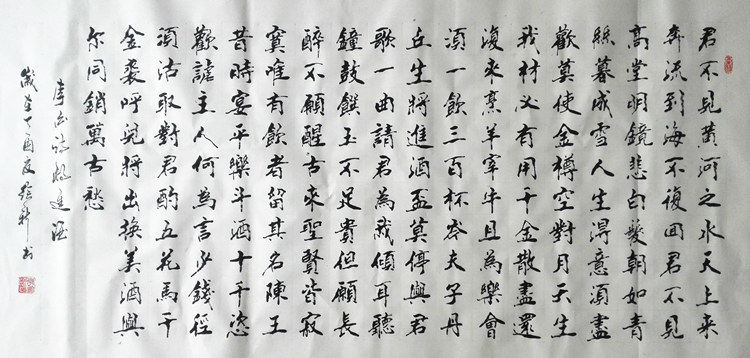 君不見黄河之水天上来
奔流到海不復回君不見
高堂明鏡悲白髮朝如青
絲暮成雪人生得意須盡
歡莫使金樽空對月天生
我材必有用千金散盡還
復来烹羊宰牛且為樂會
須一飲三百杯岑夫子丹
丘生將進酒盃莫停與君
歌一曲請君為我傾耳聽
鐘鼓饌玉不足貴但願長
醉不願醒古来聖賢皆寂
寞唯有飲者留其名陳王
昔時宴平樂斗酒十千恣
歡謔主人何為言少錢徑
須沽取對君酌五花馬千
金裘呼兒將出換美酒與
尔同銷萬古愁
李白詩將進酒
歲在丁酉夏書